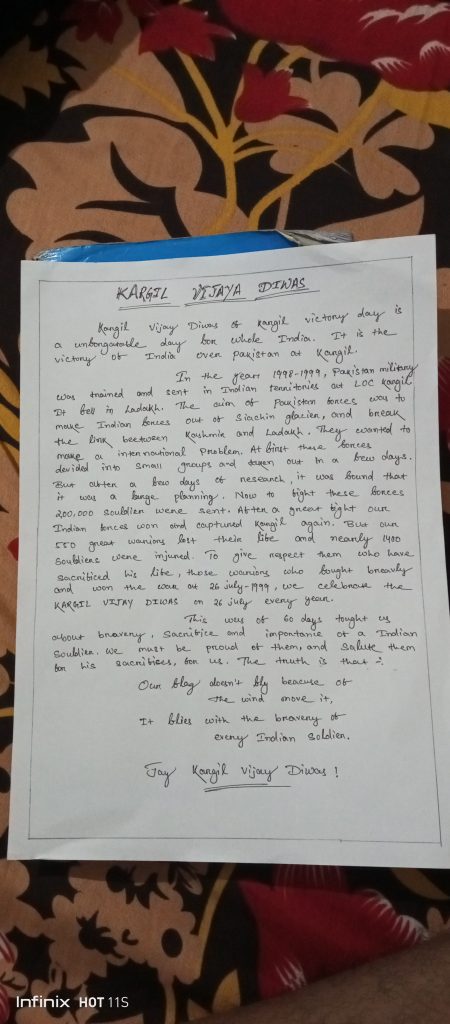 KARGIL VIJAYA DIWAS
Kargil Vijay Diwas of Kargil victory day is
a unforgatable day for whole India. It is the
victory of India over Pakistan at Kargil.
In the year 1998-1999, Pakistan military
was trained and sent in Indian territories at LOC Kargil
It fell in Ladakh. The aim of Pakistan forces was to
make Indian forces out of Siachin glacier, and break
the link beetween Kashmir and Ladakh. They wanted to
make a international Problem. At first these forces
devided into small groups and in a few days.
But after a few days of research, it was found that
it was a large planning. Now to fight these forces
200,000 souldier were sent. After a great fight our
Indian forces won and captured Kargil again. But our
550 great wariors lost their life and nearly 1400
Souldiers were injured. To give respect them who have
sacrificed his life, those wariors who fought breavly
and won the war at 26 july-1999, we celebrate the
KARGIL VIJAY DIWAS on 26 july every year.
This was of 60 days tought us
about bravery, Sacrifice and importanie of a Indian
Souldier. We must be proud of them, and salute them
for his sacrifises, for us. The truth is that :-
Our flag doesn't fly beacuse of
the wind move it,
It flies with the bravery of
every Indian Soldier.
Jay Kargil Vijay Diwas !
Infinix HOT 11S